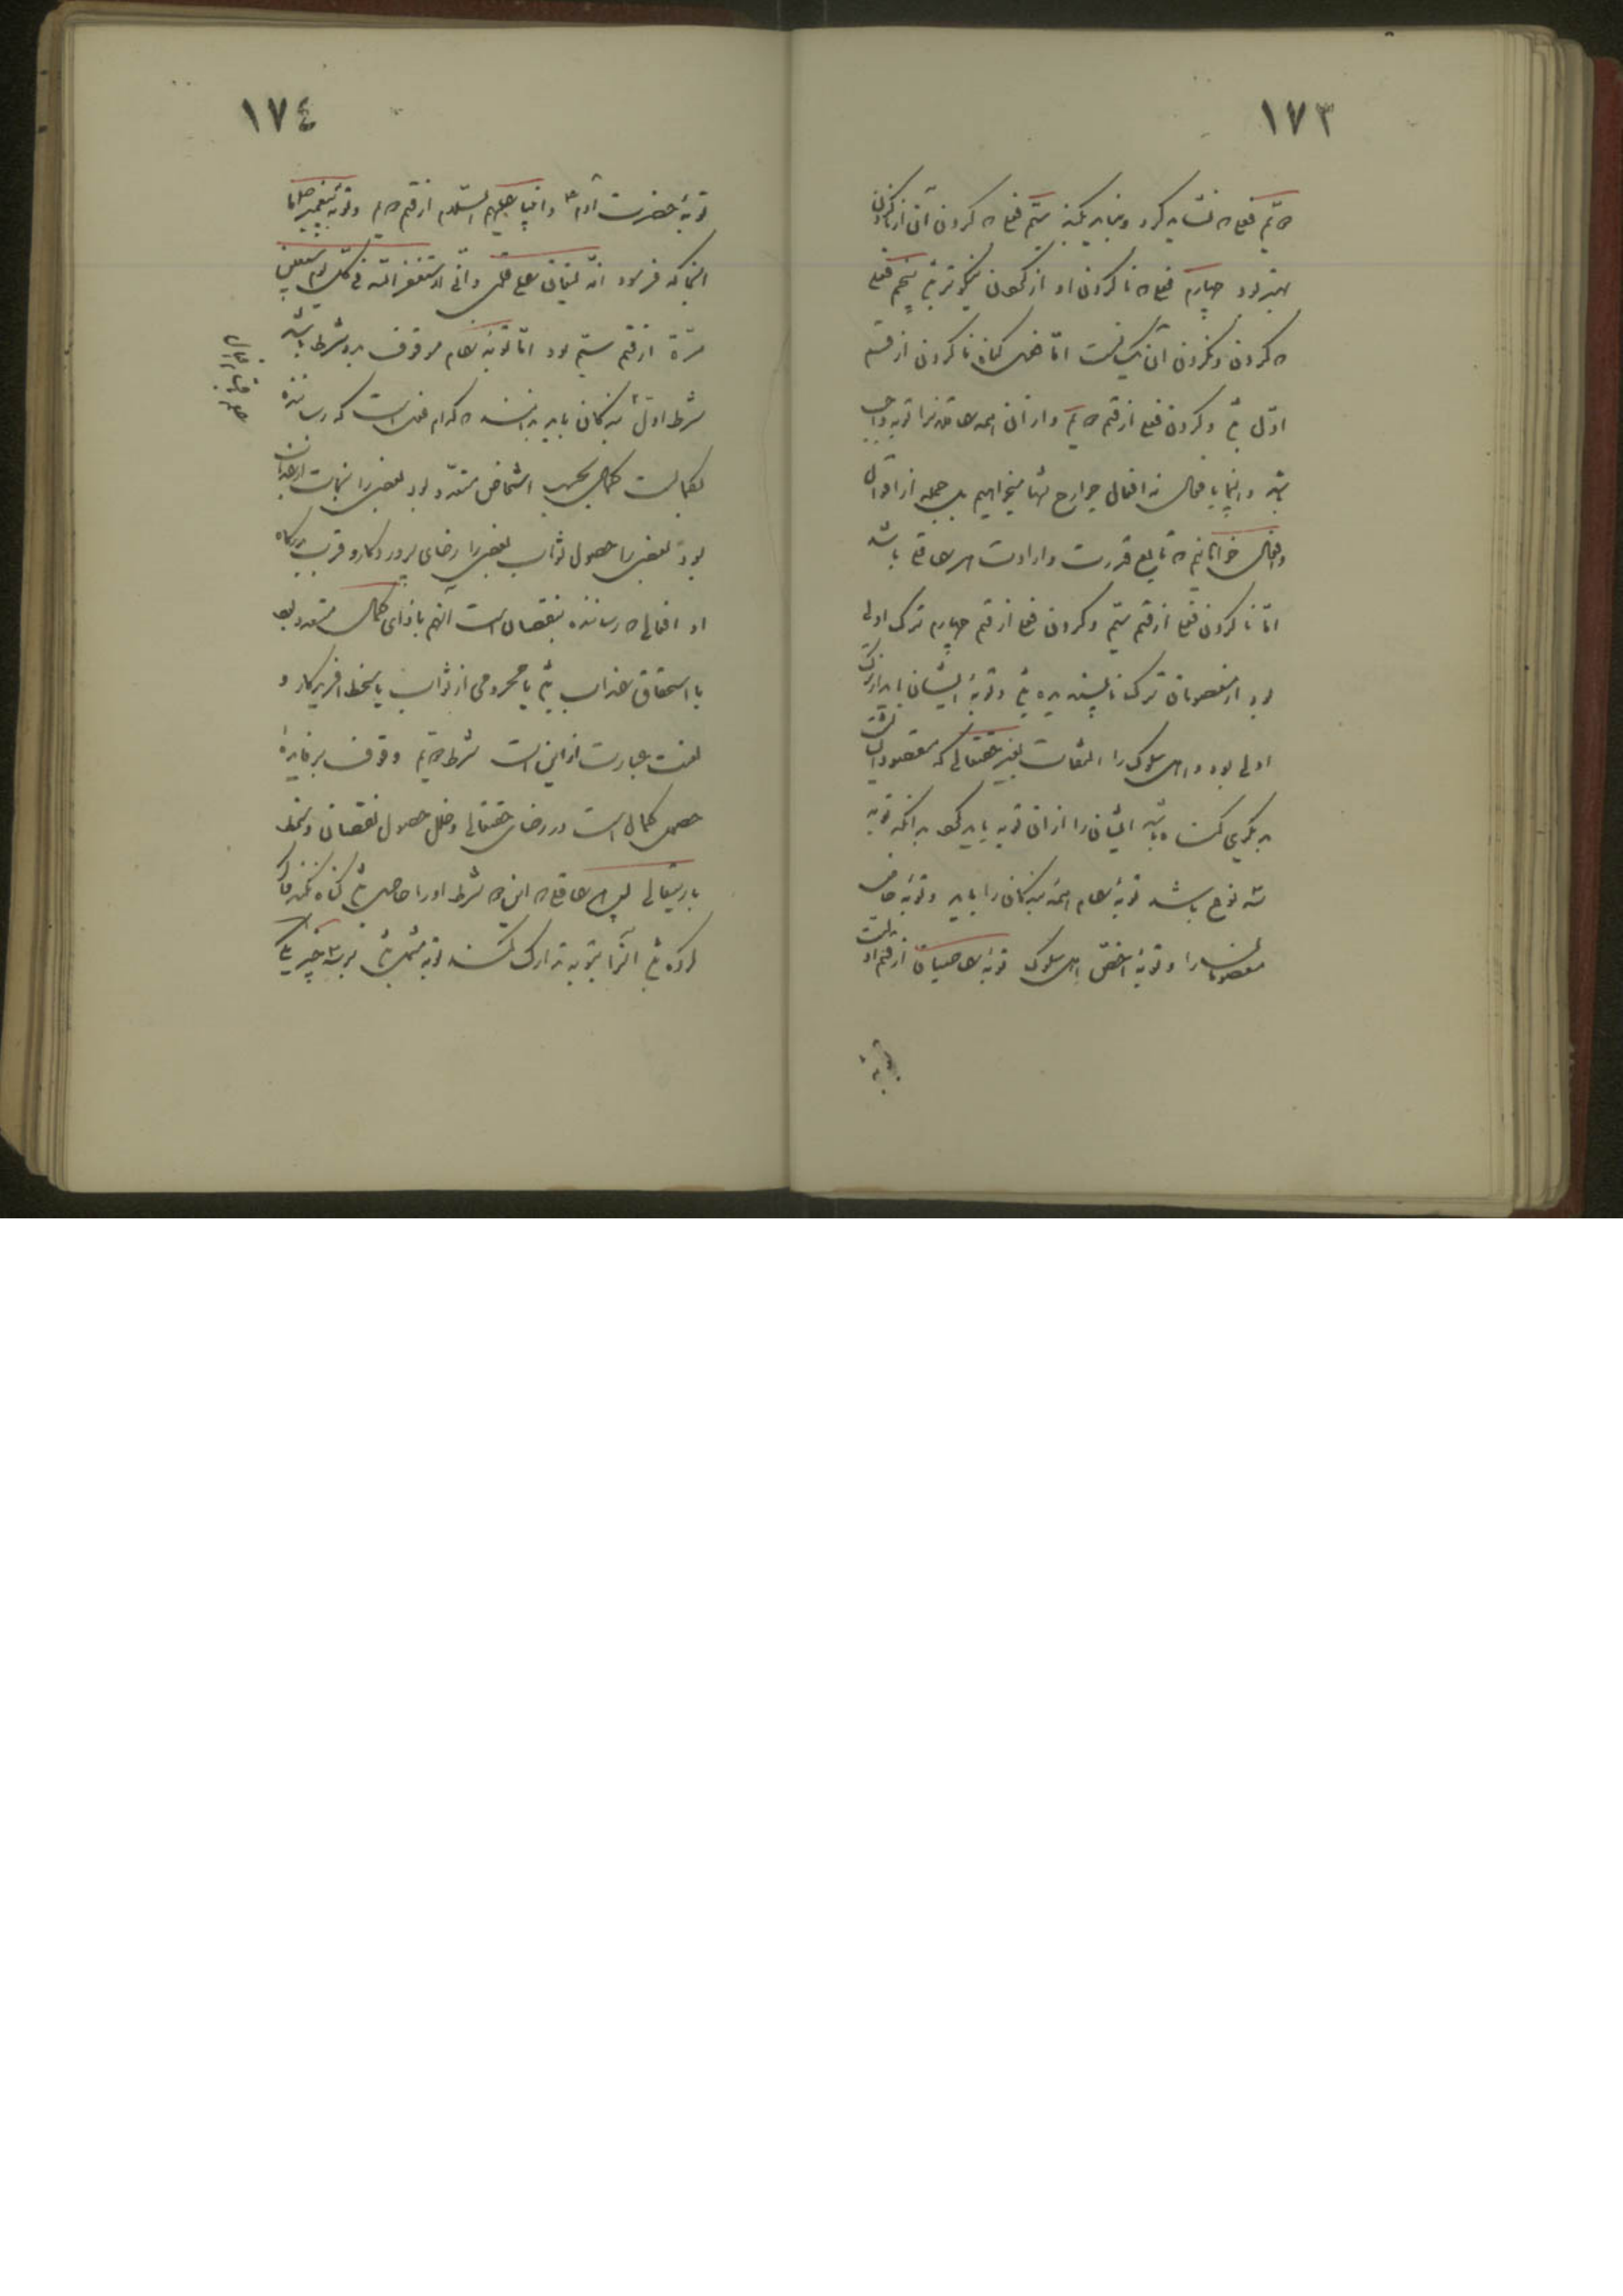 ١٧٣
دیم فعلی که نشاید کرد و نباید بکند سیم فعلی که کردن آن از ناکردن
بهتر بود چهارم فعلی که ناکردن او از کردن نیکوتر پنجم فعلی
که کردن و نکردن آن یکسانست اما گناه ناکردن از قسم
اول و کردن فعل از قسم دیم و از آن همه عاقلانرا توبه واجب
باشد و اینجا بافعال نه افعال جوارح تنها میخواهیم بل جمله از اقوال
و افعال خواهیم که تابع قدرت و ارادت هر عاقلی باشد
اما ناکردن فعل از قسم سیم و کردن فعل از قسم چهارم ترک اولی
بود از معصومان ترک ناپسندیده و توبه ایشان از ترک
اولی بود و اهل سلوک را التفات بغیر حقتعالی که مقصود ایشانست
بدیگری گناه باشد ایشان را از آن توبه باید کرد بدانکه توبه
سه نوع باشد توبه عام همه بندگان را باید و توبه خاص
معصومانرا و توبه اخص اهل سلوک توبه عاصیان از قسم اولست
توبه
١٧٤
توبه حضرت آدم و انبیا علیهم السلام از قسم دیم و توبه پیغمبر ما
آنجا که فرمود انه لیغان علی قلبی و انی لاستغفر الله فی کل یوم سبعین
مرة از قسم سیم بود اما توبه عام موقوف بدو شرط باشد
شرط اول بندگان باید بدانند که کدام فعل است که رساننده
بکمالست کمال بحسب اشخاص متعدد بود بعضی را نجات از عذاب
بود بعضی را حصول ثواب بعضی را رضای پروردگار و قرب بدرگاه
او افعالی که رساننده بنقصان است آنهم بازای کمال متعدد بود
یا استحقاق عذاب یا محرومی از ثواب یا سخط آفریدگار و
لعنت عبارت از این است شرط دیم وقوف بر فایده
حصول کمال است و رضای حقتعالی و خلل حصول نقصان و سخط
باریتعالی پس هر عاقل که این دو شرط او را حاصل گناه نکند و اگر
کرده آنرا بتوبه تدارک کند توبه مشتمل بر سه چیز یکی